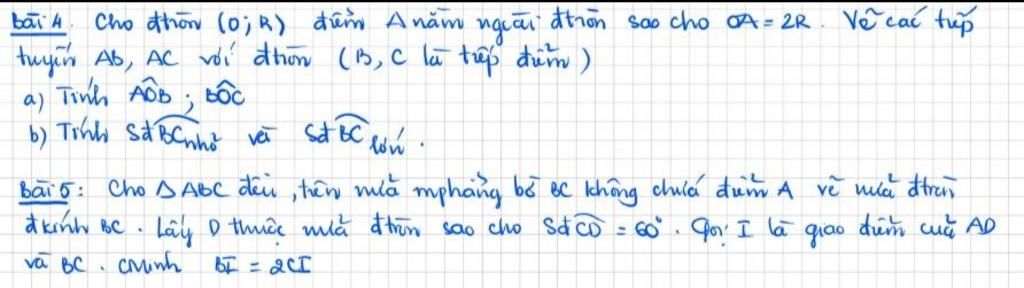 bài 4. Cho đtròn (O; R) điểm A nằm ngoài đtròn sao cho OA = 2R. Vẽ các tiếp
tuyến Ab, AC với đtròn (B, C là tiếp điểm)
a) Tính AÔB ; BÔC
b) Tính Sđ BC nhỏ và Sđ BC lớn.
Bài 5: Cho Δ ABC đều, trên nửa mphẳng bờ BC không chứa điểm A vẽ nửa đtròn
đkính BC. Lấy D thuộc nửa đtròn sao cho Sđ CD = 60°. Gọi I là giao điểm của AD
và BC. CMinh BI = 2CI